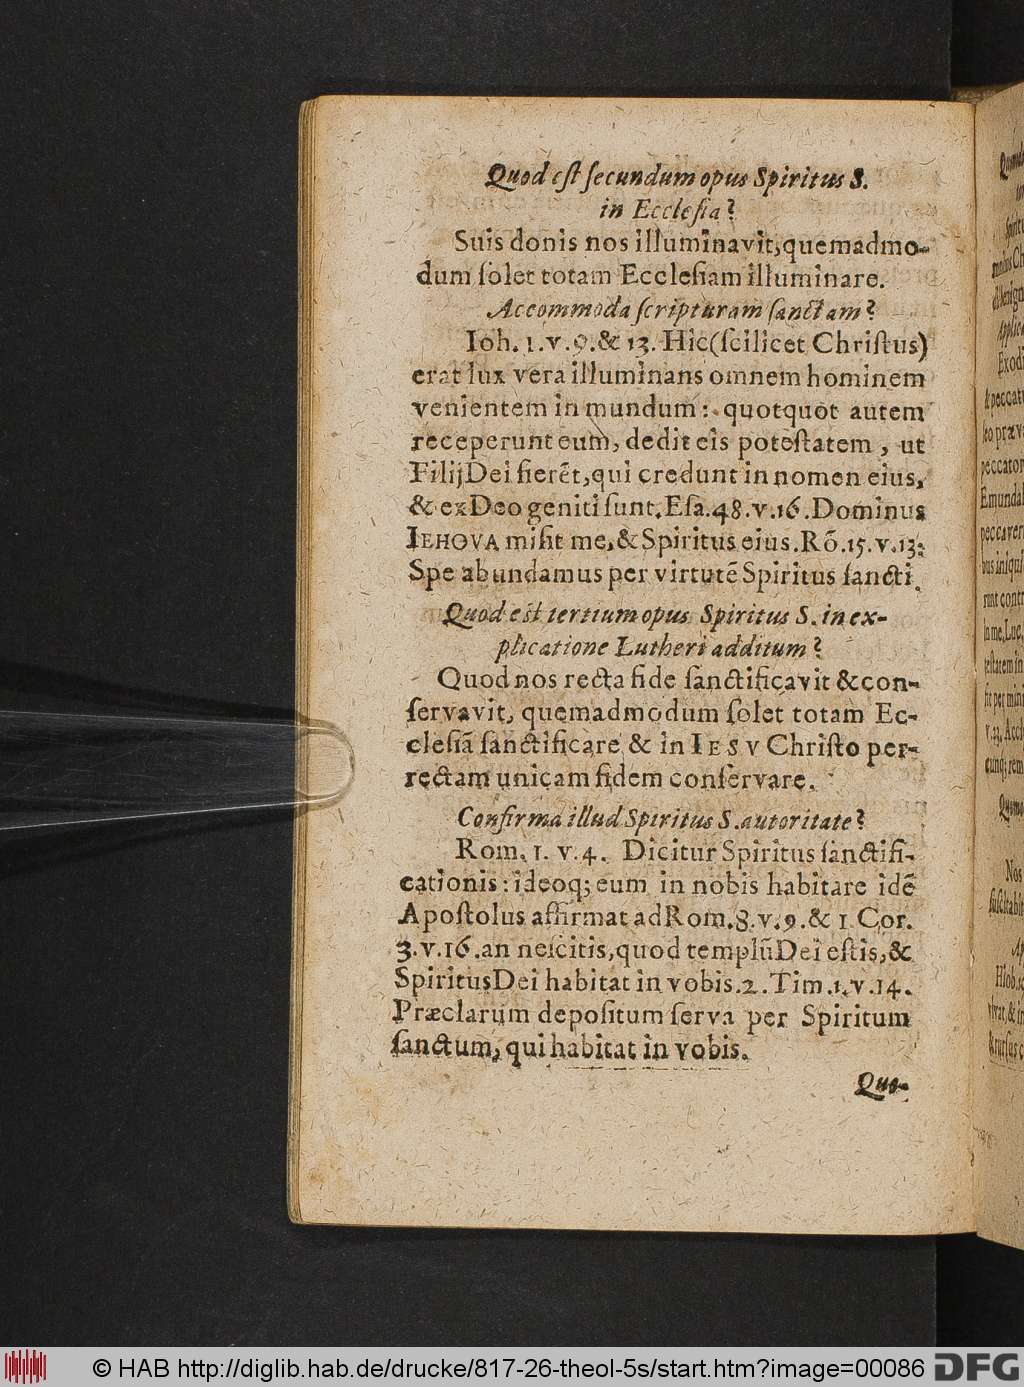 Quod est secundum opus Spiritus S.
in Ecclesia?
Suis donis nos illuminavit, quemadmo-
dum solet totam Ecclesiam illuminare.
Accommoda scripturam sanctam?
Ioh. 1. v. 9. & 13. Hic (scilicet Christus)
erat lux vera illuminans omnem hominem
venientem in mundum: quotquot autem
receperunt eum, dedit eis potestatem, ut
Filij Dei fierẽt, qui credunt in nomen eius,
& ex Deo geniti sunt. Esa. 48. v. 16. Dominus
IEHOVA misit me, & Spiritus eius. Rõ. 15. v. 13.
Spe abundamus per virtutẽ Spiritus sancti.
Quod est tertium opus Spiritus S. in ex-
plicatione Lutheri additum?
Quod nos recta fide sanctificavit & con-
servavit, quemadmodum solet totam Ec-
clesiã sanctificare & in IESV Christo per-
rectam unicam fidem conservare.
Confirma illud Spiritus S. autoritate?
Rom. 1. v. 4. Dicitur Spiritus sanctifi-
cationis: ideoq; eum in nobis habitare idẽ
Apostolus affirmat ad Rom. 8. v. 9. & 1 Cor.
3. v. 16. an nescitis, quod templũ Dei estis, &
Spiritus Dei habitat in vobis. 2. Tim. 1. v. 14.
Præclarum depositum serva per Spiritum
sanctum, qui habitat in vobis.
Quo-
© HAB http://diglib.hab.de/drucke/817-26-theol-5s/start.htm?image=00086
DFG